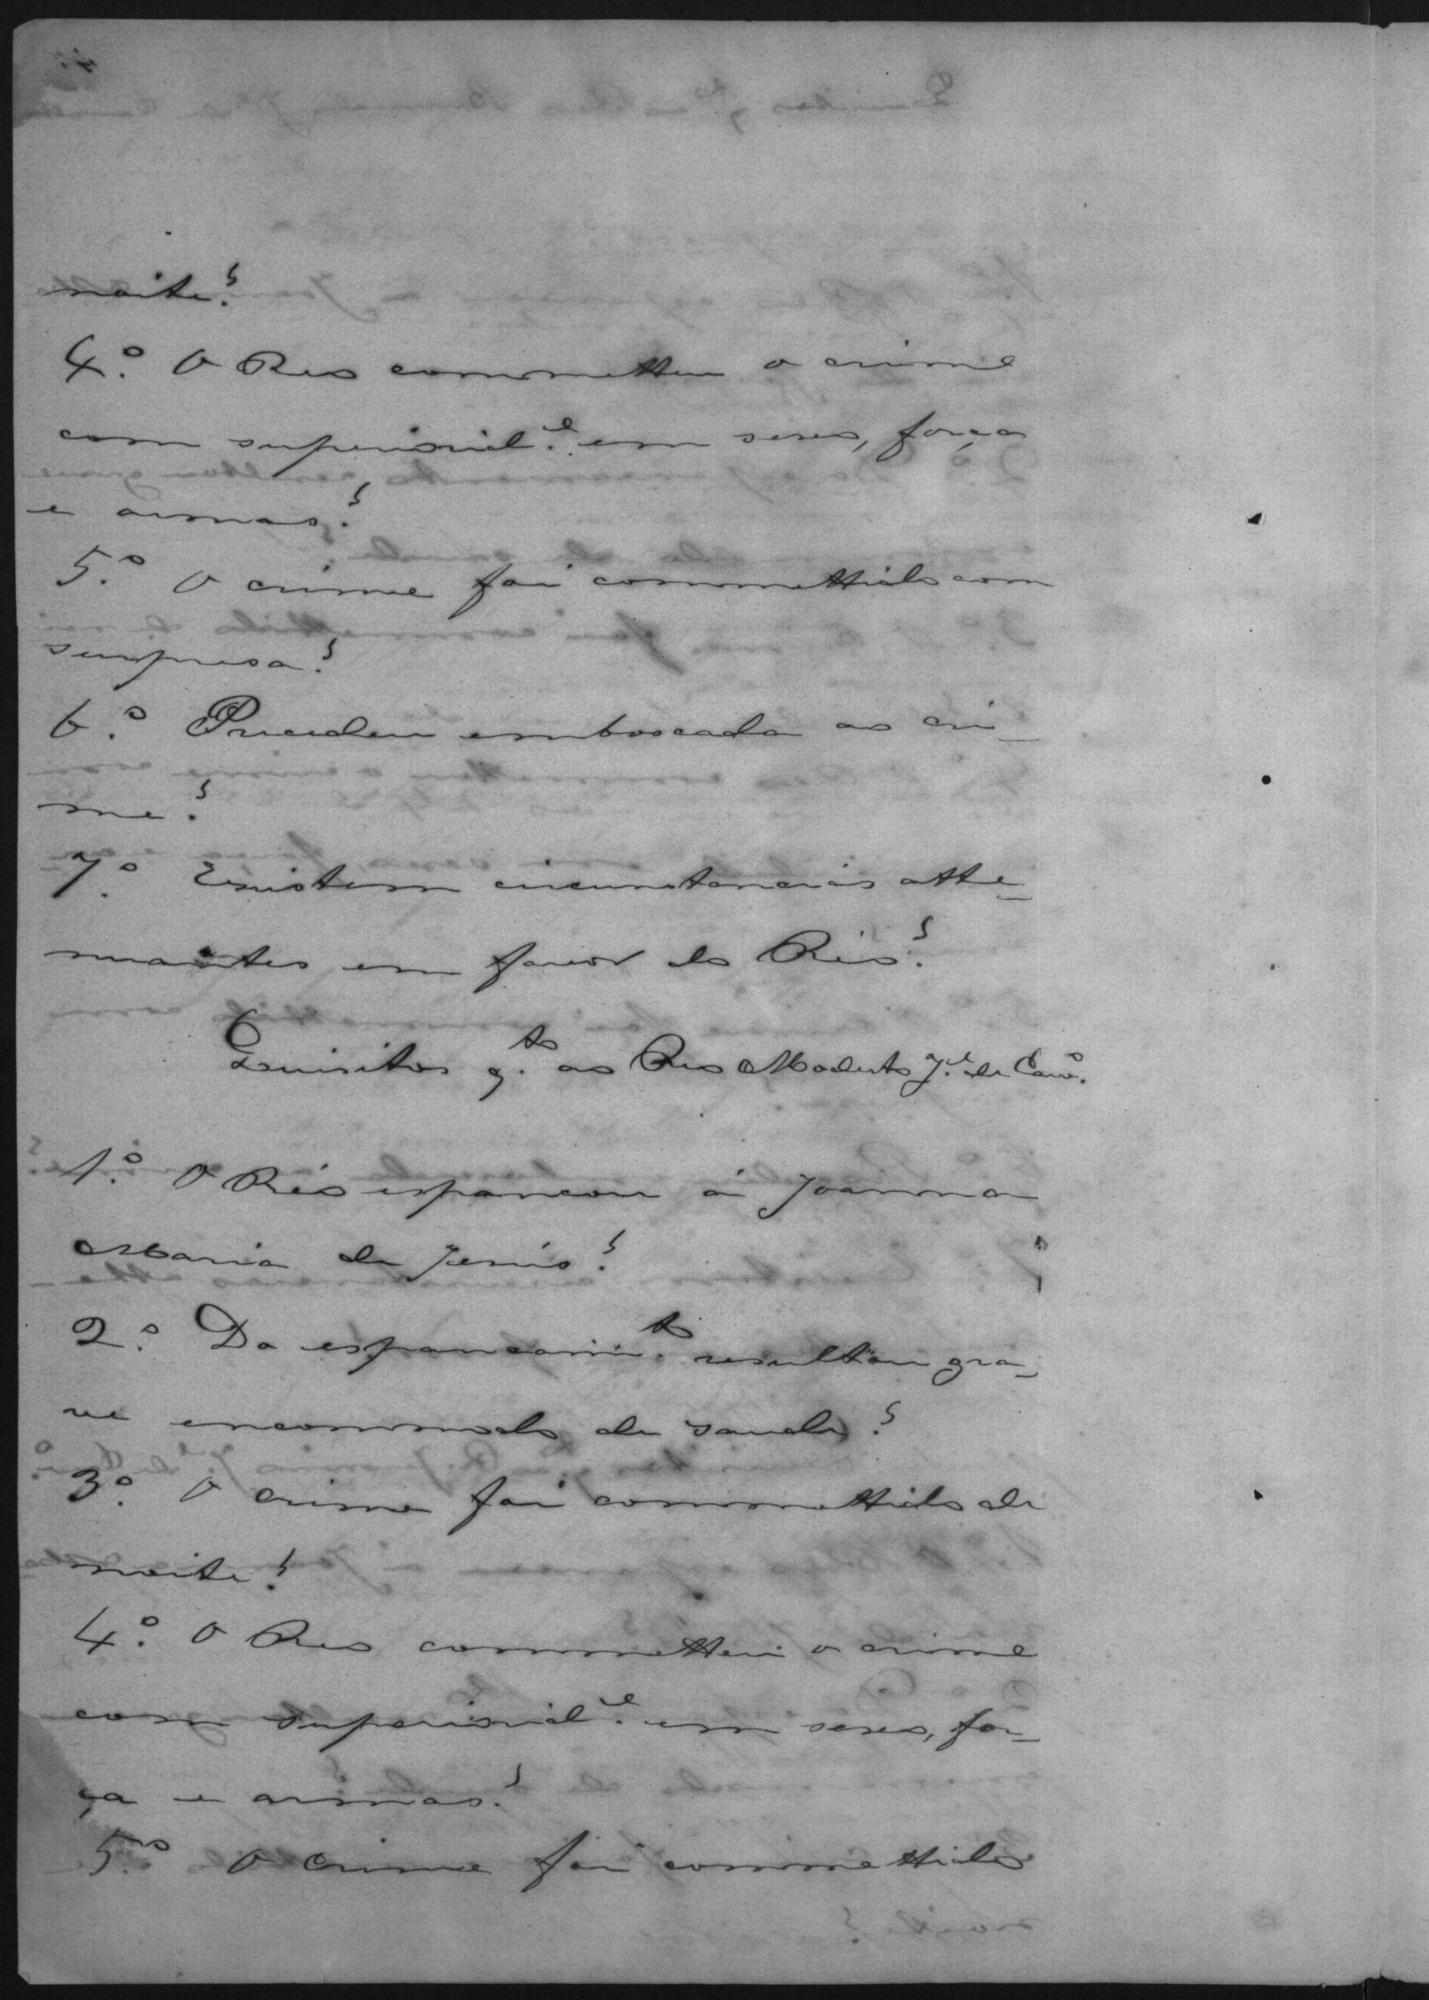 noite?
4.º O Reo commetteu o crime
com superiorid.e em sexo, força
e armas?
5.º O crime foi commettido com
surpresa?
6.º Precedeu emboscada ao cri-
me?
7.º Existem circunstancias atte-
nuantes em favor do Réo?
Quisitos q.to ao Reo Modesto J.e de Carv.o
1.º O Réo espancou á Joanna
Maria de Jesús?
2.º Do espancam.to resultou gra-
ve encommodo de saude?
3.º O crime foi commettido de
noite?
4.º O Reo commetteu o crime
com superiorid.e em sexo, for-
ça e armas?
5.º O crime foi commettido